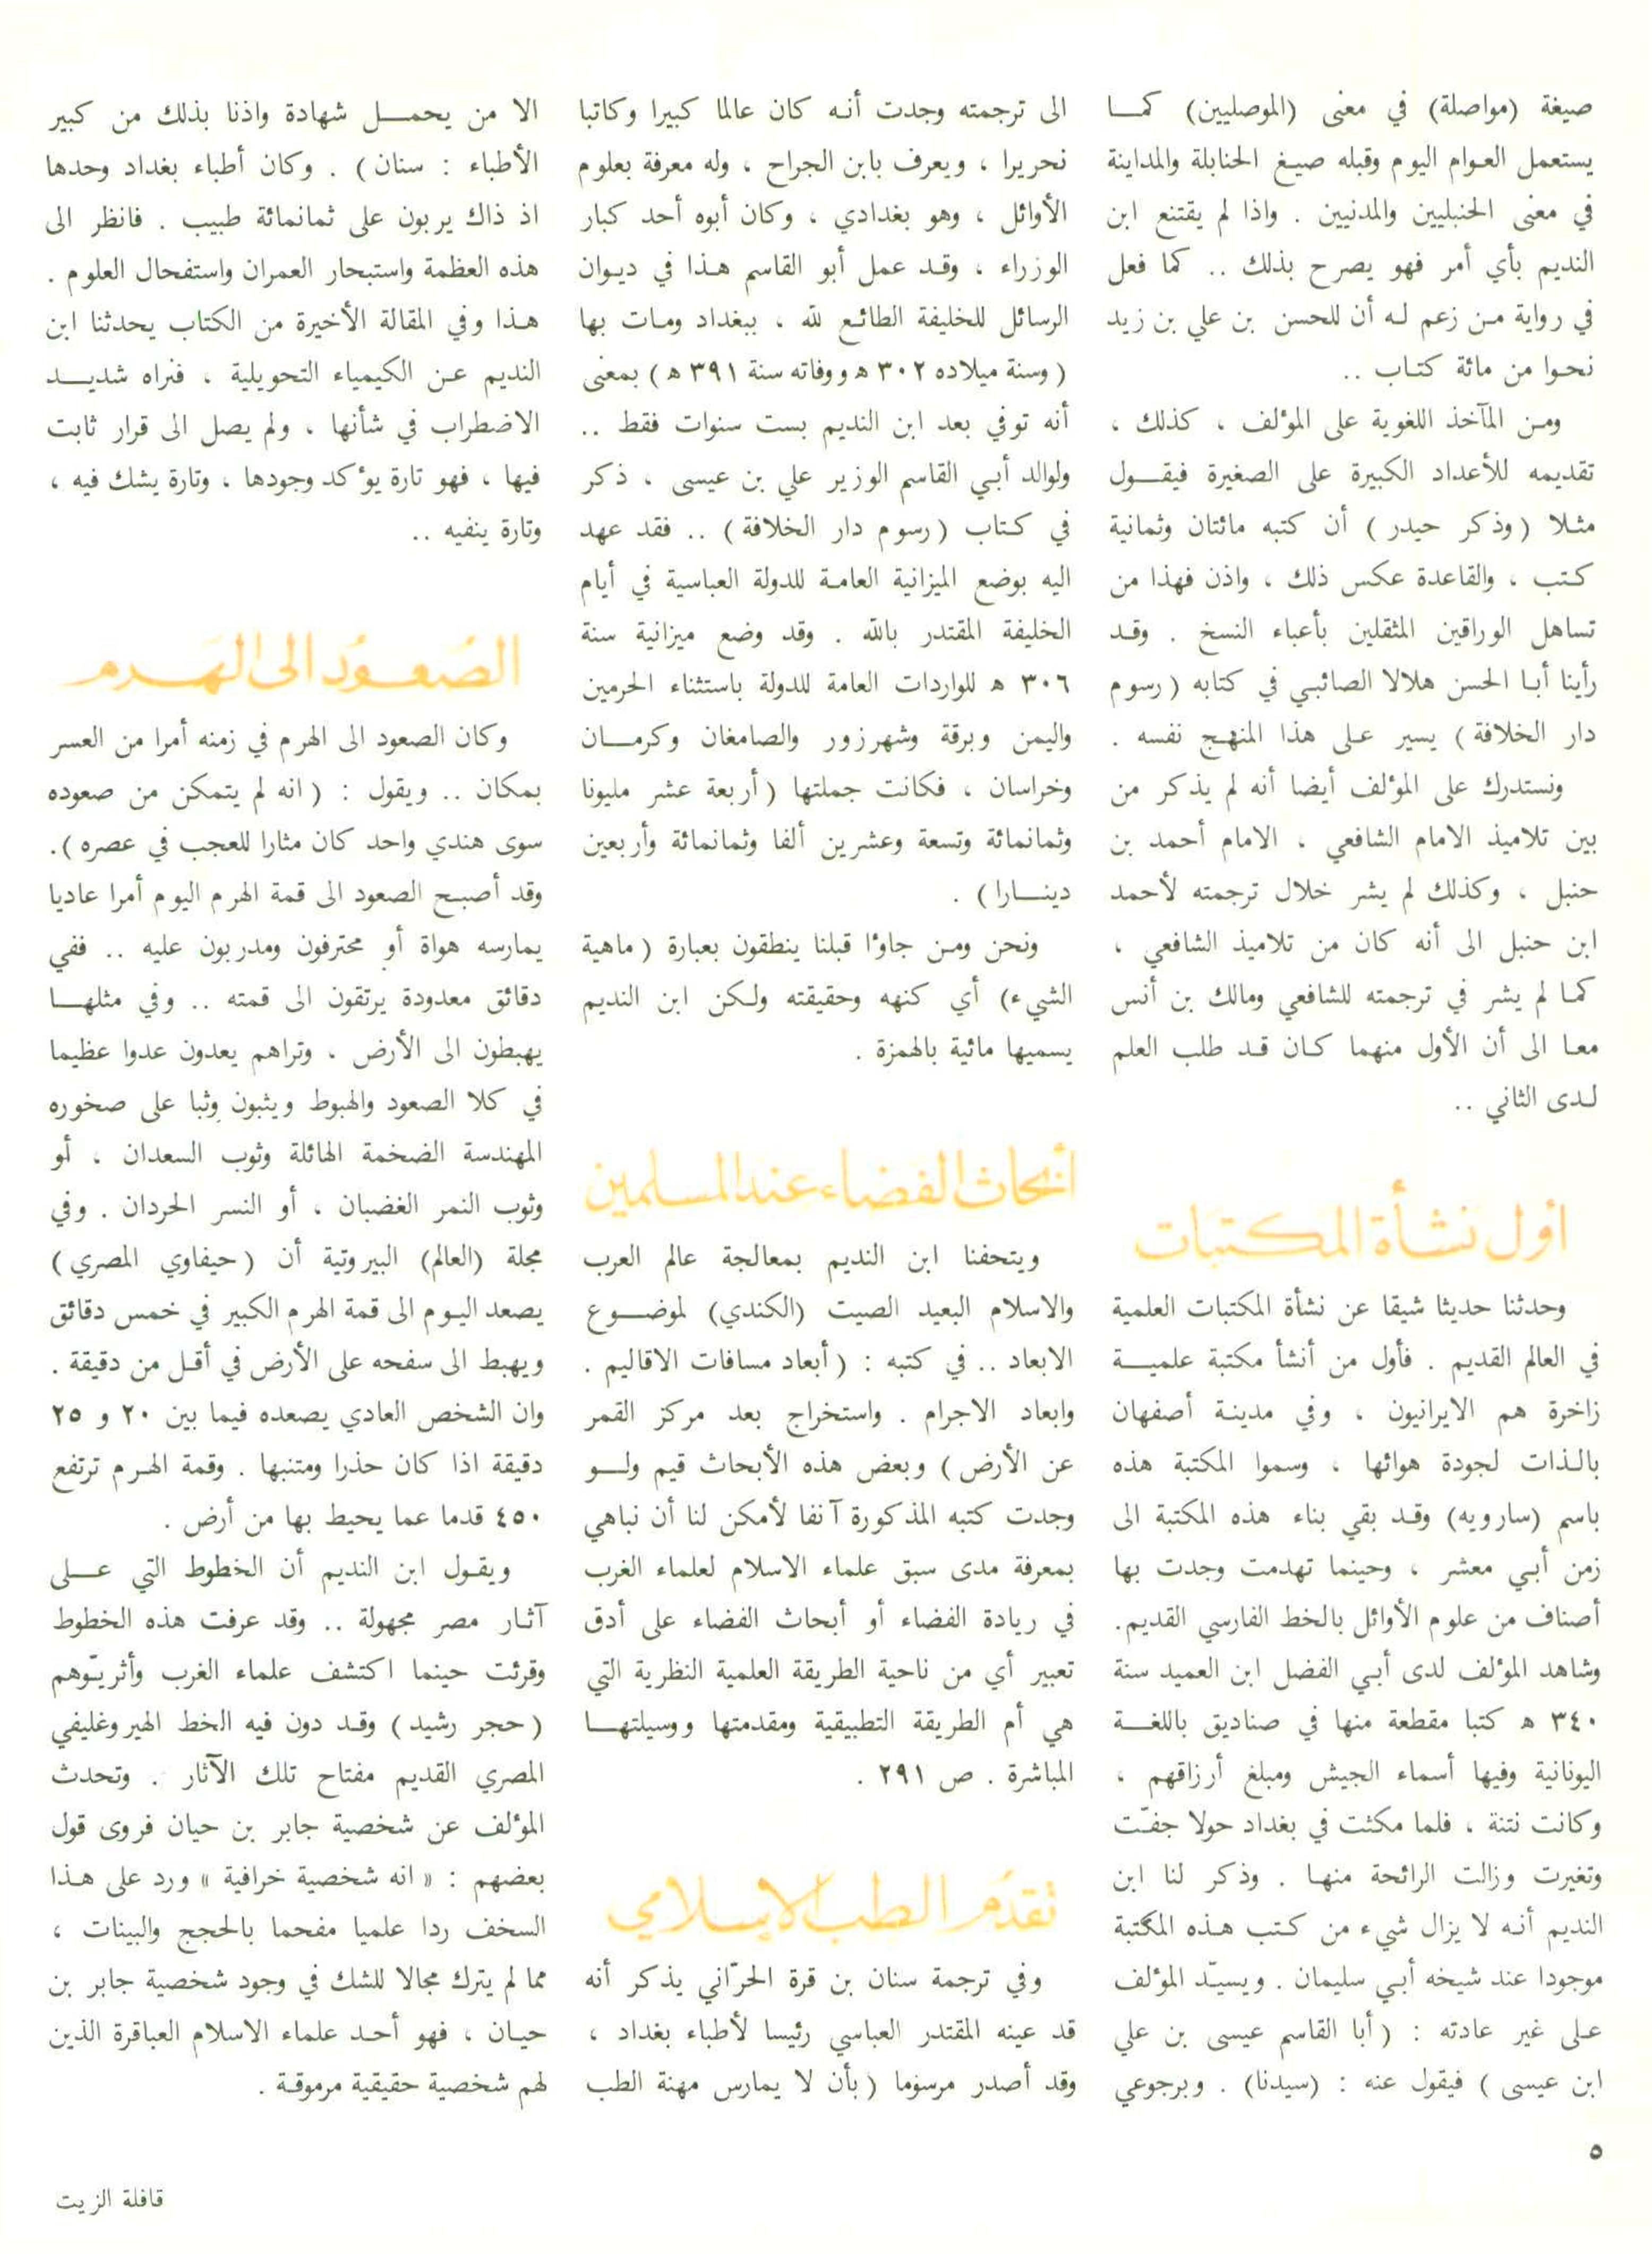 صيغة (مواصلة) في معنى (الموصليين) كما
يستعمل العوام اليوم وقبله صيغ الحنابلة والمداينة
في معنى الحنبليين والمدنيين . واذا لم يقتنع ابن
النديم بأي أمر فهو يصرح بذلك .. كما فعل
في رواية من زعم له أن للحسن بن علي بن زيد
نحوا من مائة كتاب ..
ومن المآخذ اللغوية على المؤلف ، كذلك ،
تقديمه للأعداد الكبيرة على الصغيرة فيقول
مثلا ( وذكر حيدر ) أن كتبه مائتان وثمانية
كتب ، والقاعدة عكس ذلك ، واذن فهذا من
تساهل الوراقين المثقلين بأعباء النسخ . وقد
رأينا أبا الحسن هلالا الصائبي في كتابه ( رسوم
دار الخلافة ) يسير على هذا المنهج نفسه .
ونستدرك على المؤلف أيضا أنه لم يذكر من
بين تلاميذ الامام الشافعي ، الامام أحمد بن
حنبل ، وكذلك لم يشر خلال ترجمته لأحمد
ابن حنبل الى أنه كان من تلاميذ الشافعي ،
كما لم يشر في ترجمته للشافعي ومالك بن أنس
معا الى أن الأول منهما كان قد طلب العلم
لدى الثاني ..
أول نشأة المكتبات
وحدثنا حديثا شيقا عن نشأة المكتبات العلمية
في العالم القديم . فأول من أنشأ مكتبة علمية
زاخرة هم الايرانيون ، وفي مدينة أصفهان
بالذات لجودة هوائها ، وسموا المكتبة هذه
باسم (سارويه) وقد بقي بناء هذه المكتبة الى
زمن أبي معشر ، وحينما تهدمت وجدت بها
أصناف من علوم الأوائل بالخط الفارسي القديم.
وشاهد المؤلف لدى أبي الفضل ابن العميد سنة
٣٤٠ ه كتبا مقطعة منها في صناديق باللغة
اليونانية وفيها أسماء الجيش ومبلغ أرزاقهم ،
وكانت نتنة ، فلما مكثت في بغداد حولا جفّت
وتغيرت وزالت الرائحة منها . وذكر لنا ابن
النديم أنه لا يزال شيء من كتب هذه المكتبة
موجودا عند شيخه أبي سليمان . ويسيّد المؤلف
على غير عادته : ( أبا القاسم عيسى بن علي
ابن عيسى ) فيقول عنه : (سيدنا) . وبرجوعي
الى ترجمته وجدت أنه كان عالما كبيرا وكاتبا
نحريرا ، ويعرف بابن الجراح ، وله معرفة بعلوم
الأوائل ، وهو بغدادي ، وكان أبوه أحد كبار
الوزراء ، وقد عمل أبو القاسم هذا في ديوان
الرسائل للخليفة الطائع لله ، ببغداد ومات بها
( وسنة ميلاده ٣٠٢ ه ووفاته سنة ٣٩١ ه ) بمعنى
أنه توفي بعد ابن النديم بست سنوات فقط ..
ولوالد أبي القاسم الوزير علي بن عيسى ، ذكر
في كتاب ( رسوم دار الخلافة ) .. فقد عهد
اليه بوضع الميزانية العامة للدولة العباسية في أيام
الخليفة المقتدر بالله . وقد وضع ميزانية سنة
٣٠٦ ه للواردات العامة للدولة باستثناء الحرمين
واليمن وبرقة وشهرزور والصامغان وكرمان
وخراسان ، فكانت جملتها ( أربعة عشر مليونا
وثمانمائة وتسعة وعشرين ألفا وثمانمائة وأربعين
دينارا ) .
ونحن ومن جاوًا قبلنا ينطقون بعبارة ( ماهية
الشيء) أي كنهه وحقيقته ولكن ابن النديم
يسميها مائية بالهمزة .
أبحاث الفضاء عند المسلمين
ويتحفنا ابن النديم بمعالجة عالم العرب
والاسلام البعيد الصيت (الكندي) لموضوع
الابعاد .. في كتبه : ( أبعاد مسافات الاقاليم .
وابعاد الاجرام . واستخراج بعد مركز القمر
عن الأرض ) وبعض هذه الأبحاث قيم ولو
وجدت كتبه المذكورة آنفا لأمكن لنا أن نباهي
بمعرفة مدى سبق علماء الاسلام لعلماء الغرب
في ريادة الفضاء أو أبحاث الفضاء على أدق
تعبير أي من ناحية الطريقة العلمية النظرية التي
هي أم الطريقة التطبيقية ومقدمتها ووسيلتها
المباشرة . ص ٢٩١ .
تقدم الطب الاسلامي
وفي ترجمة سنان بن قرة الحرّاني يذكر أنه
قد عينه المقتدر العباسي رئيسا لأطباء بغداد ،
وقد أصدر مرسوما ( بأن لا يمارس مهنة الطب
الا من يحمل شهادة واذنا بذلك من كبير
الأطباء : سنان ) . وكان أطباء بغداد وحدها
اذ ذاك يربون على ثمانمائة طبيب . فانظر الى
هذه العظمة واستبحار العمران واستفحال العلوم .
هذا وفي المقالة الأخيرة من الكتاب يحدثنا ابن
النديم عن الكيمياء التحويلية ، فنراه شديد
الاضطراب في شأنها ، ولم يصل الى قرار ثابت
فيها ، فهو تارة يؤكد وجودها ، وتارة يشك فيه ،
وتارة ينفيه ..
الصعود الى الهرم
وكان الصعود الى الهرم في زمنه أمرا من العسر
بمكان .. ويقول : ( انه لم يتمكن من صعوده
سوى هندي واحد كان مثارا للعجب في عصره ).
وقد أصبح الصعود الى قمة الهرم اليوم أمرا عاديا
يمارسه هواة أو محترفون ومدربون عليه .. ففي
دقائق معدودة يرتقون الى قمته .. وفي مثلها
يهبطون الى الأرض ، وتراهم يعدون عدوا عظيما
في كلا الصعود والهبوط ويثبون وثبا على صخوره
المهندسة الضخمة الهائلة وثوب السعدان ، أو
وثوب النمر الغضبان ، أو النسر الحردان . وفي
مجلة (العالم) البيروتية أن ( حيفاوي المصري )
يصعد اليوم الى قمة الهرم الكبير في خمس دقائق
ويهبط الى سفحه على الأرض في أقل من دقيقة .
وان الشخص العادي يصعده فيما بين ٢٠ و ٢٥
دقيقة اذا كان حذرا ومتنبها . وقمة الهرم ترتفع
٤٥٠ قدما عما يحيط بها من أرض .
ويقول ابن النديم أن الخطوط التي على
آثار مصر مجهولة .. وقد عرفت هذه الخطوط
وقرئت حينما اكتشف علماء الغرب وأثريّوهم
( حجر رشيد ) وقد دون فيه الخط الهيروغليفي
المصري القديم مفتاح تلك الآثار . وتحدث
المؤلف عن شخصية جابر بن حيان فروى قول
بعضهم : « انه شخصية خرافية » ورد على هذا
السخف ردا علميا مفحما بالحجج والبينات ،
مما لم يترك مجالا للشك في وجود شخصية جابر بن
حيان ، فهو أحد علماء الاسلام العباقرة الذين
لهم شخصية حقيقية مرموقة .
٥
قافلة الزيت